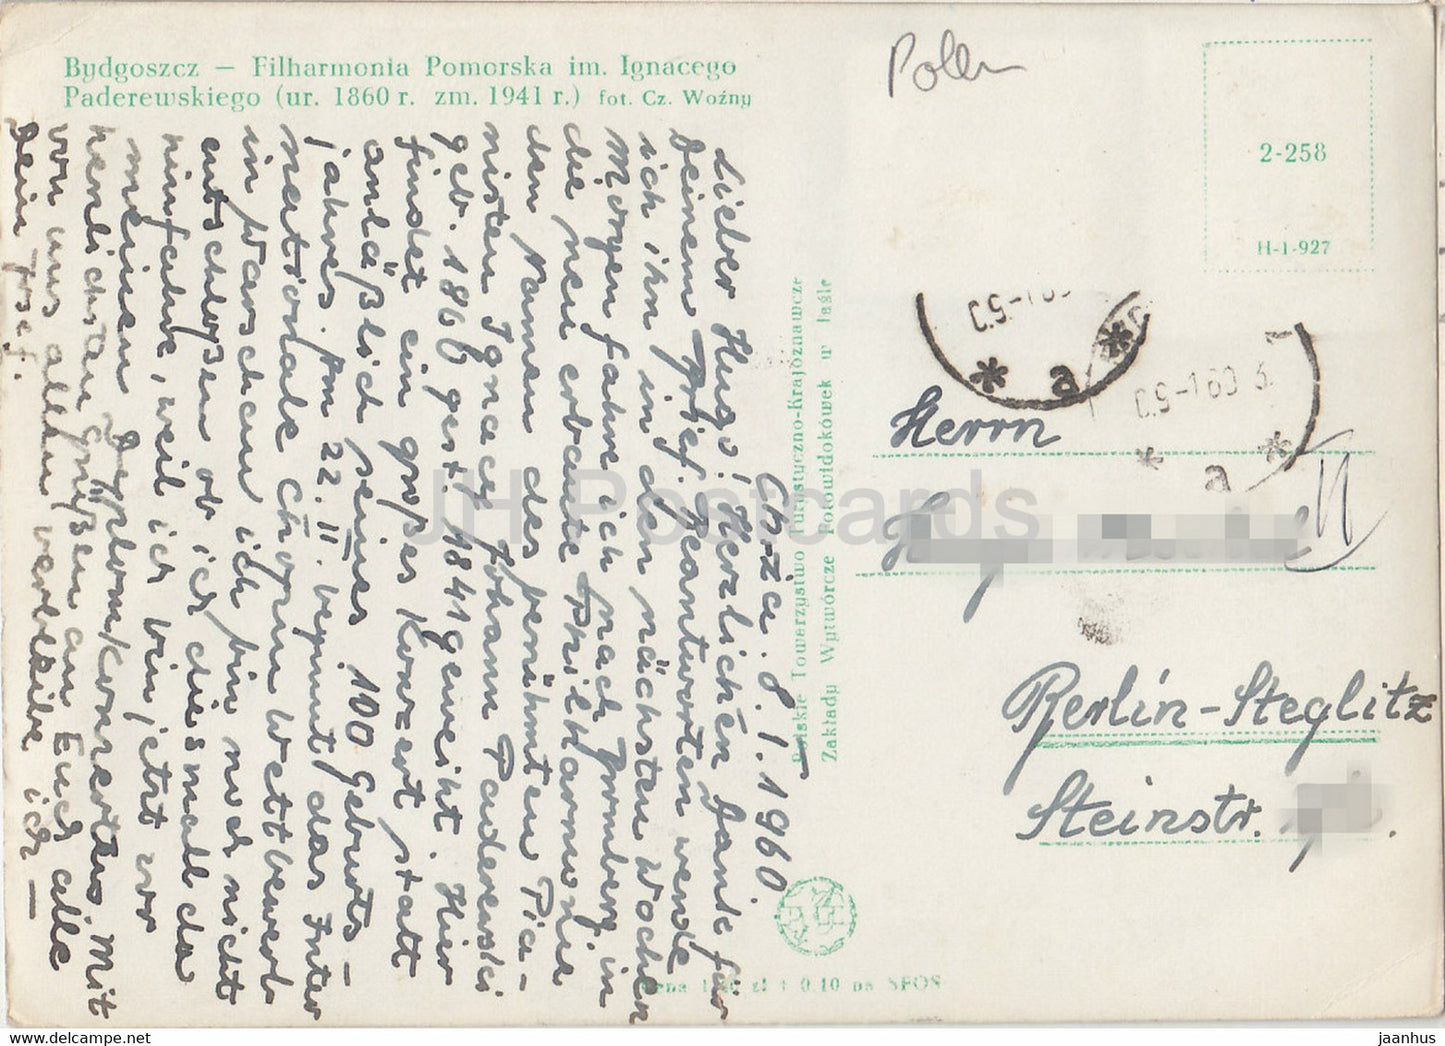 Bydgoszcz — Filharmonia Pomorska im. Ignacego
Paderewskiego (ur. 1860 r. zm. 1941 r.) fot. Cz. Woźny
Polen
2-258
H-1-927
8.1.1960
Lieber Hugo! Herzlichen Danke für
Deinem Brief. Beantworten werde
ich ihn in den nächsten Wochen
Morgen fahre ich nach Bromberg in
die neu erbaute Philharmonie
den Namen des berühmten Pia-
nisten Ignacy Johann Paderewski
geb. 1860 gest. 1941 geweiht. Hier
findet ein großes Konzert statt
anläßlich seines 100 Geburts-
jahres. Am 22.II. beginnt das Inter
nationale Chopin Wettbewerb
in Warschau ich bin noch nicht
entschloßen ob ich diesmall da
hinfahre, weil ich bin jetzt vor
meinem Diplom/Konzert. Mit
herzlichsten Grüßen an Euch alle
von uns allen verbleibe ich —
Dein Josef.
Polskie Towarzystwo Turystyczno-Krajoznawcze
Zakłady Wytwórcze Fotowidokówek w Jaśle
Cena 1,80 zł + 0.10 na SFOS
a
a
Herrn
Berlin-Steglitz
Steinstr.
JH Postcards
© www.delcampe.net
jaanhus